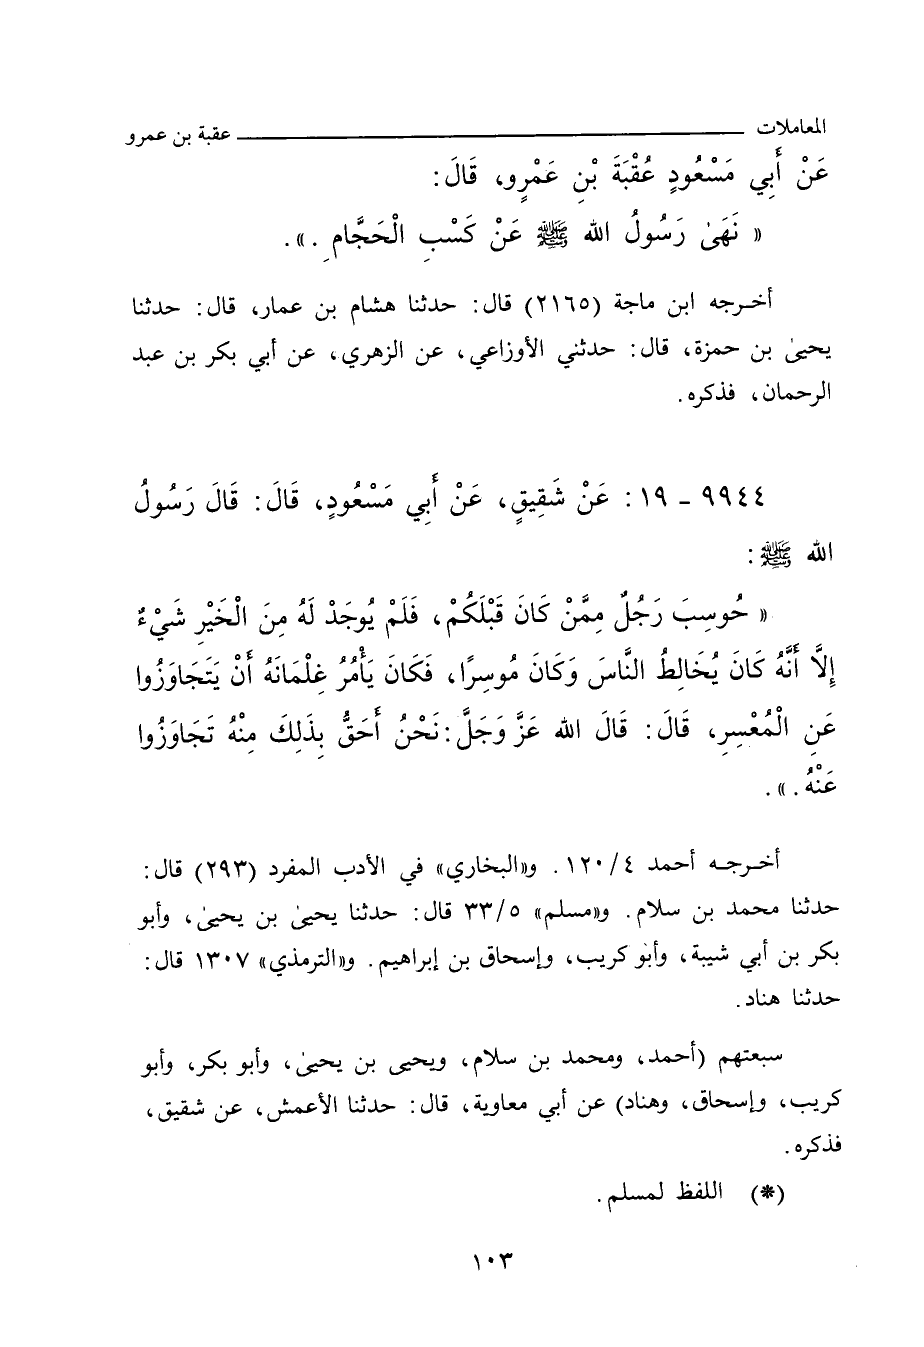 المعاملات ــــــــــ عقبة بن عمرو
عَنْ أَبِي مَسْعُودٍ عُقْبَةَ بْنِ عَمْرٍو، قَالَ:
« نَهَىٰ رَسُولُ الله ﷺ عَنْ كَسْبِ الْحَجَّامِ . ».
أخرجه ابن ماجة (٢١٦٥) قال: حدثنا هشام بن عمار، قال: حدثنا
يحيىٰ بن حمزة، قال: حدثني الأوزاعي، عن الزهري، عن أبي بكر بن عبد
الرحمان، فذكره.
٩٩٤٤ - ١٩ : عَنْ شَقِيقٍ، عَنْ أَبِي مَسْعُودٍ، قَالَ: قَالَ رَسُولُ
الله ﷺ:
« حُوسِبَ رَجُلٌ مِمَّنْ كَانَ قَبْلَكُمْ، فَلَمْ يُوجَدْ لَهُ مِنَ الْخَيْرِ شَيْءٌ
إِلَّا أَنَّهُ كَانَ يُخَالِطُ النَّاسَ وَكَانَ مُوسِرًا، فَكَانَ يَأْمُرُ غِلْمَانَهُ أَنْ يَتَجَاوَزُوا
عَنِ الْمُعْسِرِ، قَالَ: قَالَ الله عَزَّ وَجَلَّ: نَحْنُ أَحَقُّ بِذَلِكَ مِنْهُ تَجَاوَزُوا
عَنْهُ . ».
أخرجه أحمد ٤/١٢٠. و«البخاري» في الأدب المفرد (٢٩٣) قال:
حدثنا محمد بن سلام. و«مسلم» ٥/٣٣ قال: حدثنا يحيىٰ بن يحيىٰ، وأبو
بكر بن أبي شيبة، وأبو كريب، وإسحاق بن إبراهيم. و«الترمذي» ١٣٠٧ قال:
حدثنا هناد.
سبعتهم (أحمد، ومحمد بن سلام، ويحيى بن يحيىٰ، وأبو بكر، وأبو
كريب، وإسحاق، وهناد) عن أبي معاوية، قال: حدثنا الأعمش، عن شقيق،
فذكره.
(*) اللفظ لمسلم.
١٠٣